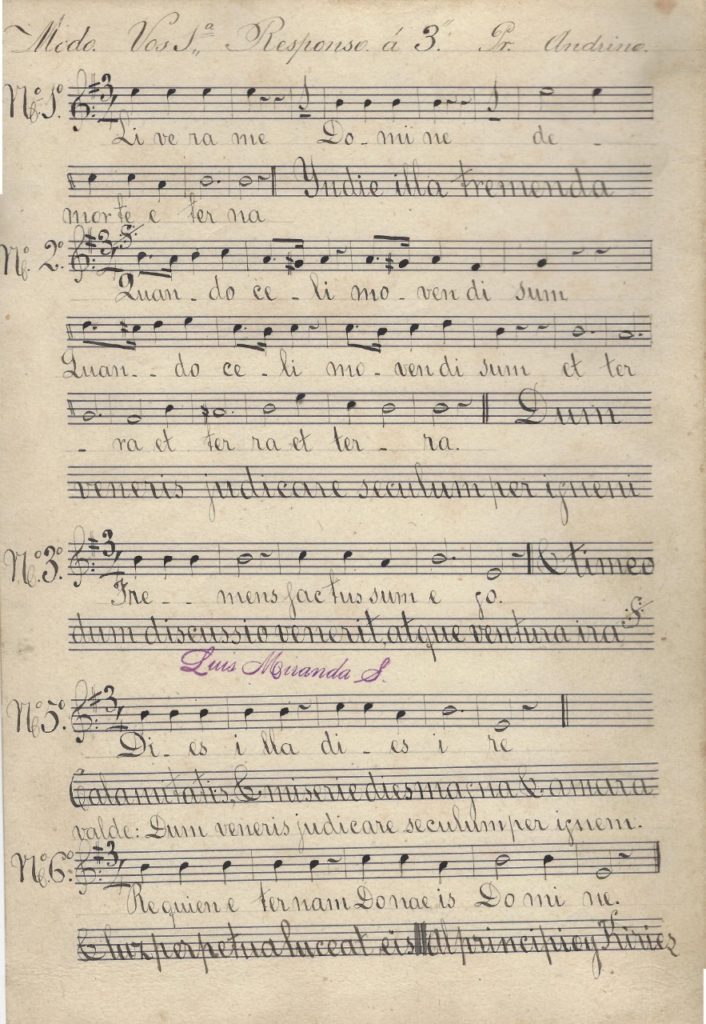 Modo. Vos 1ª Responso. á 3. Pr. Andrino.
Nº 1º
Li ve ra me Do- mi ne de -
morte e ter na Yndie illa tremenda
Nº 2º
Quan- do ce - li mo- ven di sum
Quan- - do ce - li mo - ven di sum et ter
- ra et ter ra et ter - ra. Dum
veneris judicare seculum per igneni
Nº 3º
Tre - - mens factus sum e go. & timeo
dum discussio venerit, atque ventura ira
Luis Miranda S.
Nº 5º
Di - es i lla di - es i re
Calamitatis, & miserie dies magna & amara
valde: Dum veneris judicare seculum per ignem.
Nº 6º
Requien e ternam Dona e is Do mi ne.
& lux perpetua luceat eis Al principio y Kiries